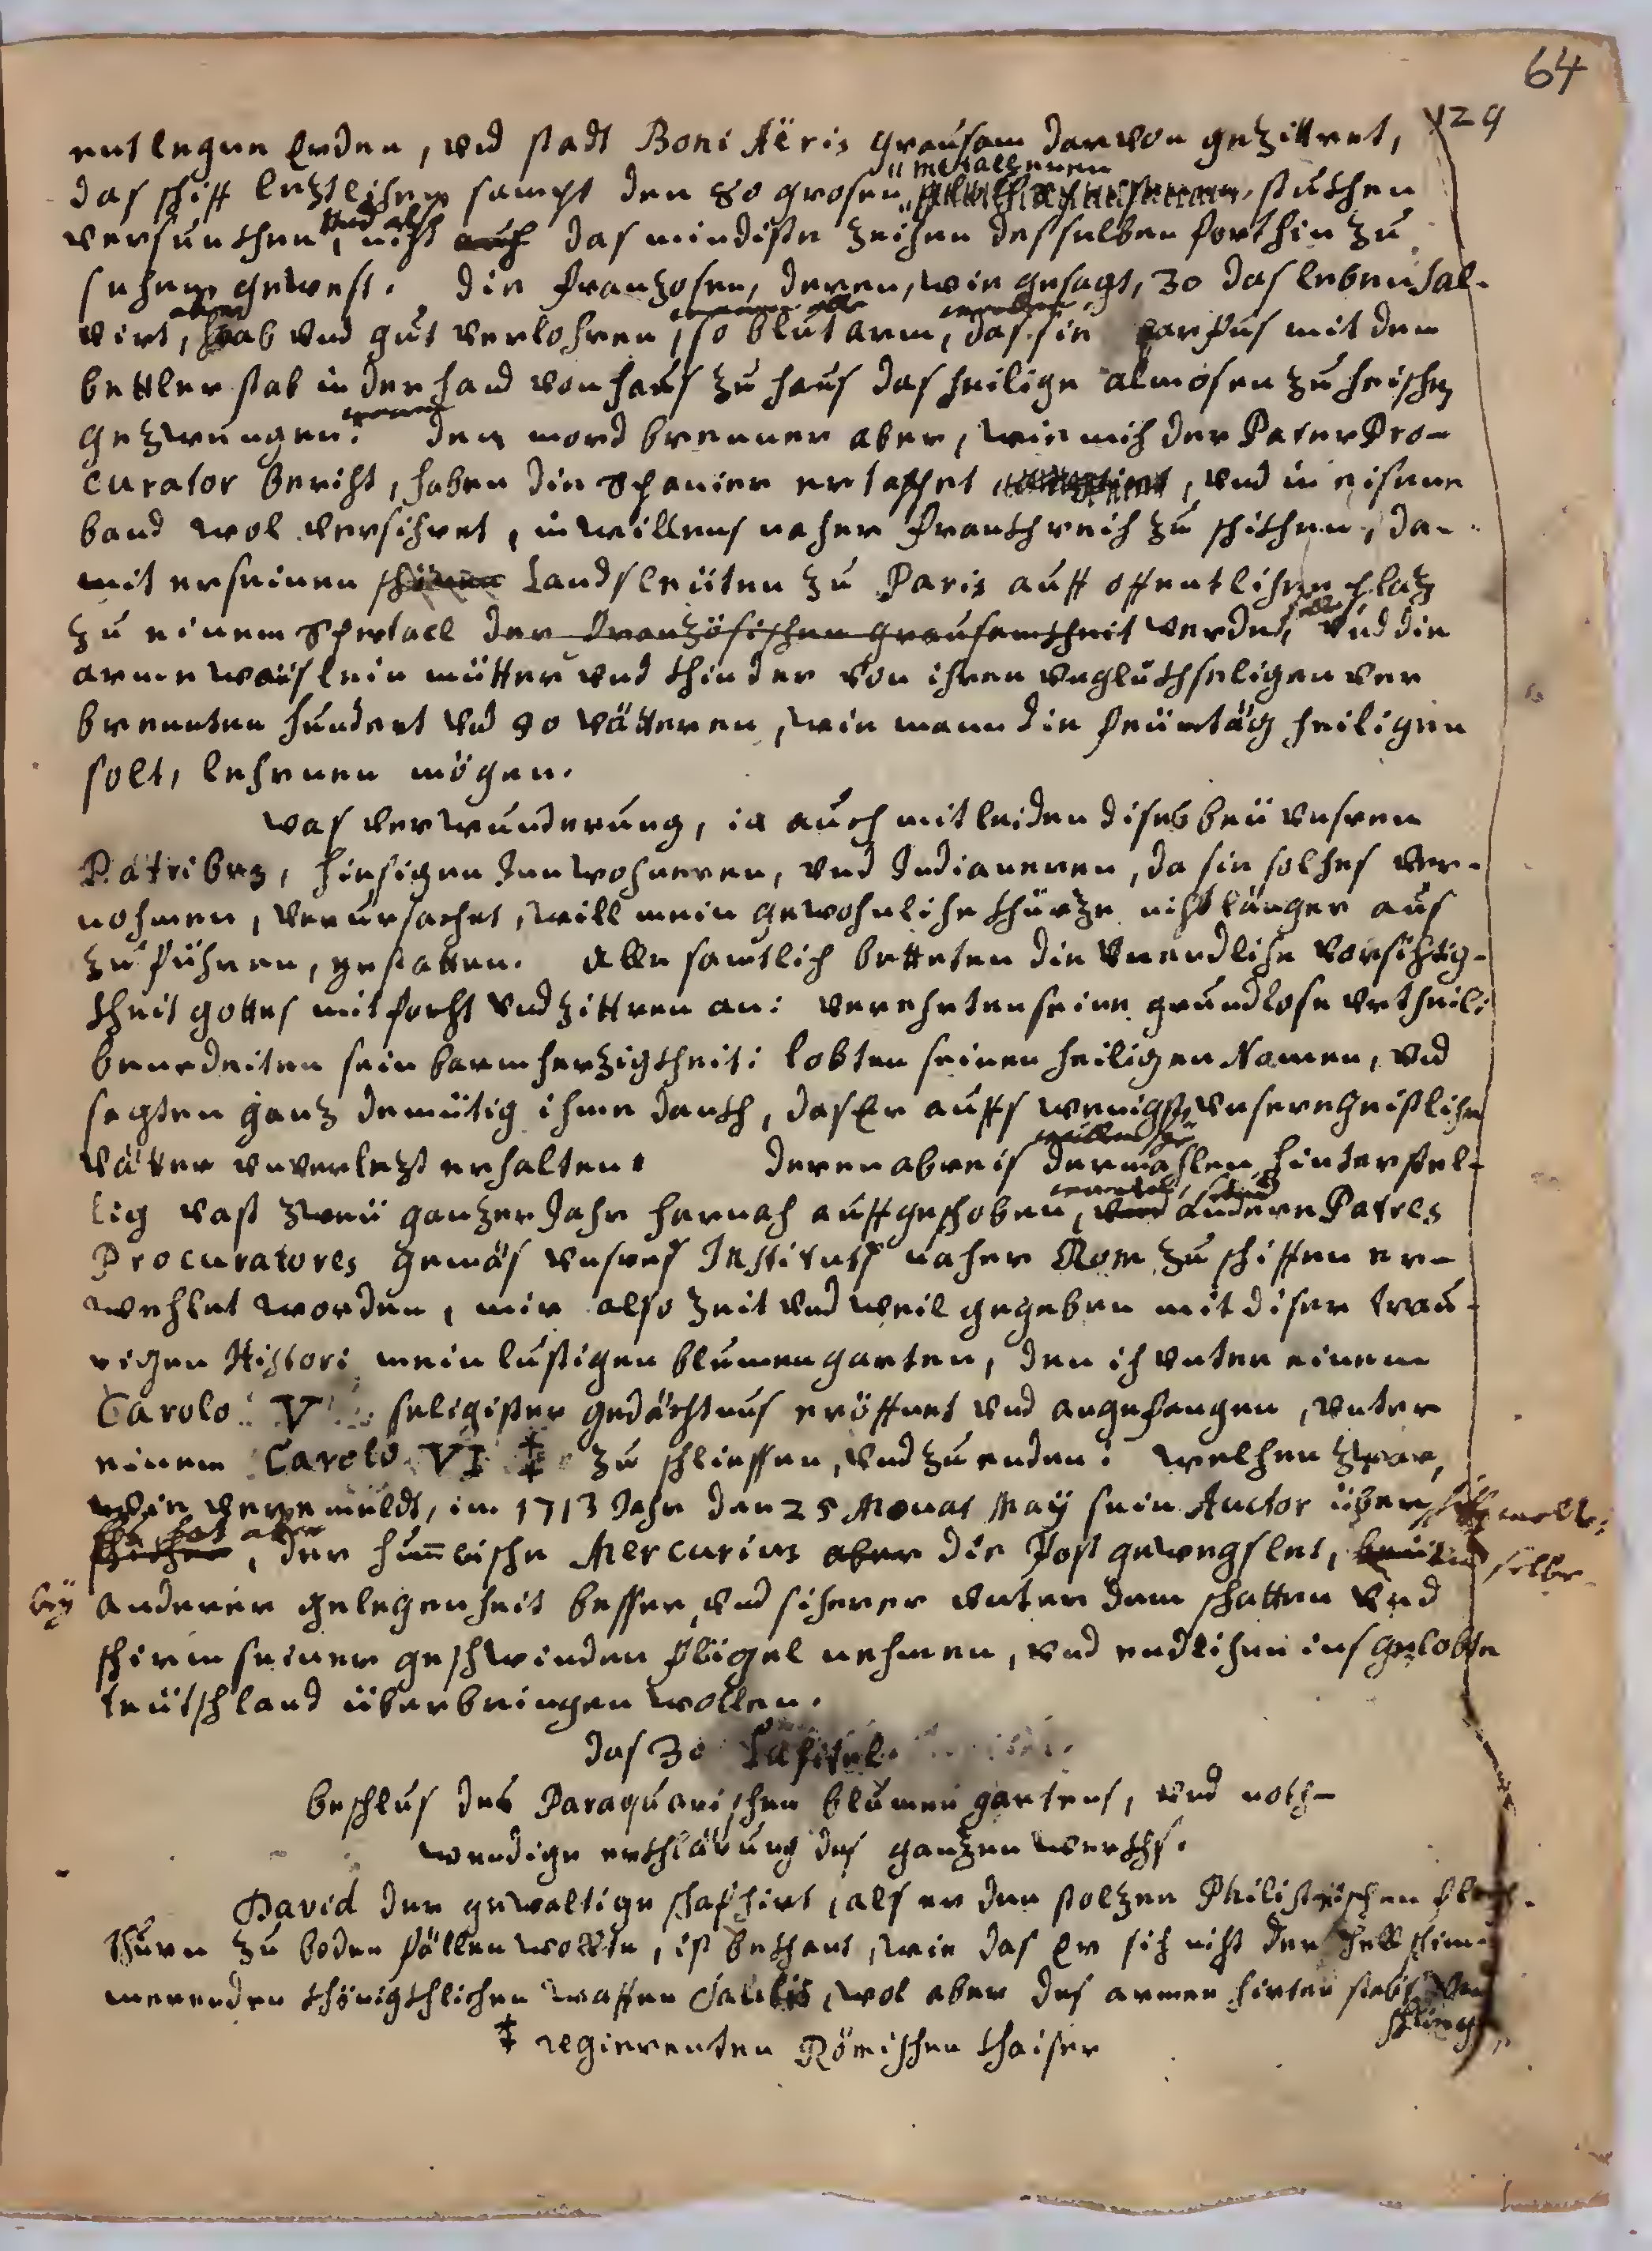 64
129
entlegne Erden, vnd stadt Boni Aëris grausam darvon gezittret,
metallenen
das schiff letztlichen sampt den 80 grosen stuckhen
vnd also
versunckhen, nicht auch das mindiste zeichen desselben forthin zu
sehen gewest. die franzosen, deren, wie gesagt, 30 das leben sal-
aber
virt, haab vnd gut verlohren, so blut arm, das sie barfus mit dem
bettlerstab in der hand von haus zu haus das heilige almosen zu heischen
gezwungen. den mordbrenner aber, wie mich der Pater Pro-
curator bericht, haben die Spanier ertappet, vnd in eisene
band wol versichret, in willens naher franckhreich zu schickhen, da-
mit er seinen schönen Landsleüten zu Paris auff offentlichen platz
zu einem Spectacl der französischen grausamkheit werden, vnd die
arme wäislein mütter vnd khinder von ihren vngluckhseligen ver
brennten hundert vnd 80 vätteren, wie mann die feürtäg heiligen
solt, lehrnen mögen.
was verwunderung, ia auch mitleiden dises beÿ vnsren
Patribus, hiesigen Innwohneren, vnd Indianeren, da sie solches ver-
nohmen, verursachet, will mein gewohnliche khürze nicht länger aus
zu führen, gestatten. Alle samtlich betteten die vnendliche vorsichtig-
kheit gottes mit forcht vnd zittren an: verehrten seine grundlose vrtheil:
benedeiten sein barmherzigkheit: lobten seinen heiligen Namen, vnd
sagten ganz demütig ihme danckh, das Er auffs wenigst vnsere geistliche
vätter vnverletzt erhalten. deren abreis dermahlen hinterstel-
lig vast zweÿ ganzer Jahr hernach auffgeschoben, vnd andere Patres
Procuratores gemäs vnsres Instituts naher Rom zu schiffen er-
wehlet worden, mir also zeit vnd weil gegeben mit diser trau-
rigen Histori mein lustigen blumengarten, den ich vnter einem
Carolo V seligister gedächtnus eröffnet vnd angefangen, vnter
einem Carolo VI ‡ zu schliessen, vnd zu enden. welchen zwar,
wie vermeldt, im 1713 Jahr den 25 Monat Maÿ sein Auctor über
schickhen, der himlische Mercurius aber die Post gewegslet,
beÿ anderer gelegenheit besser, vnd sicherer vnter dem schatten vnd
schirm seiner geschwinden fligel nehmen, vnd endlichen ins gelobte
teütschland überbringen wollen.
das 30 Capitel.
beschlus des Paraquarischen blumen gartens, vnd noth-
wendige erkhlärung des ganzen werckhs.
David der gewaltige schafhirt, als er den stolzen Philistäischen
thurn zu boden fällen wollte, ist bekhant, wie das Er sich nicht der hellschim-
merenden khönigkhlichen waffen Saulis, wol aber des armen hirten stabs, vnd
schling
‡ regierenten Römischen khaiser